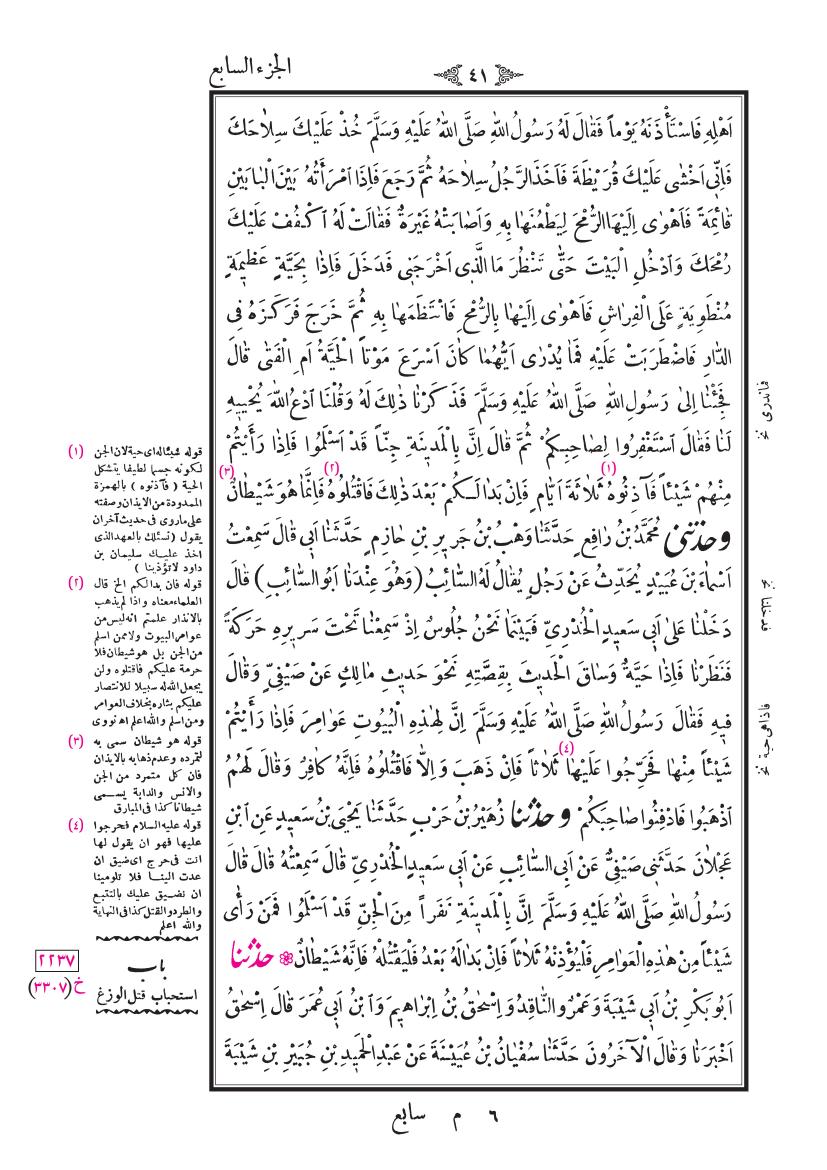 الجزء السابع
٤١
اَهْلِهِ فَاسْتَأْذَنَهُ يَوْماً فَقَالَ لَهُ رَسُولُ اللهِ صَلَّى اللهُ عَلَيْهِ وَسَلَّمَ خُذْ عَلَيْكَ سِلَاحَكَ
فَاِنِّي اَخْشٰى عَلَيْكَ قُرَيْظَةَ فَاَخَذَ الرَّجُلُ سِلَاحَهُ ثُمَّ رَجَعَ فَاِذَا امْرَأَتُهُ بَيْنَ الْبَابَيْنِ
قَائِمَةً فَاَهْوٰى اِلَيْهَا الرُّمْحَ لِيَطْعُنَهَا بِهِ وَاَصَابَتْهُ غَيْرَةٌ فَقَالَتْ لَهُ اكْفُفْ عَلَيْكَ
رُمْحَكَ وَادْخُلِ الْبَيْتَ حَتّٰى تَنْظُرَ مَا الَّذِى اَخْرَجَنِى فَدَخَلَ فَاِذَا بِحَيَّةٍ عَظِيمَةٍ
مُنْطَوِيَةٍ عَلَى الْفِرَاشِ فَاَهْوٰى اِلَيْهَا بِالرُّمْحِ فَانْتَظَمَهَا بِهِ ثُمَّ خَرَجَ فَرَكَزَهُ فِى
الدَّارِ فَاضْطَرَبَتْ عَلَيْهِ فَمَا يُدْرٰى اَيُّهُمَا كَانَ اَسْرَعَ مَوْتاً الْحَيَّةُ اَمِ الْفَتٰى قَالَ
فَجِئْنَا اِلٰى رَسُولِ اللهِ صَلَّى اللهُ عَلَيْهِ وَسَلَّمَ فَذَكَرْنَا ذٰلِكَ لَهُ وَقُلْنَا ادْعُ اللهَ يُحْيِيهِ
لَنَا فَقَالَ اسْتَغْفِرُوا لِصَاحِبِكُمْ ثُمَّ قَالَ اِنَّ بِالْمَدِينَةِ جِنّاً قَدْ اَسْلَمُوا فَاِذَا رَأَيْتُمْ
مِنْهُمْ شَيْئاً فَآذِنُوهُ (١) ثَلَاثَةَ اَيَّامٍ فَاِنْ بَدَا لَكُمْ (٢) بَعْدَ ذٰلِكَ فَاقْتُلُوهُ فَاِنَّمَا هُوَ شَيْطَانٌ (٣)
وحدثنى مُحَمَّدُ بْنُ رَافِعٍ حَدَّثَنَا وَهْبُ بْنُ جَرِيرِ بْنِ حَازِمٍ حَدَّثَنَا اَبِى قَالَ سَمِعْتُ
اَسْمَاءَ بْنَ عُبَيْدٍ يُحَدِّثُ عَنْ رَجُلٍ يُقَالُ لَهُ السَّائِبُ (وَهُوَ عِنْدَنَا اَبُو السَّائِبِ) قَالَ
دَخَلْنَا عَلٰى اَبِى سَعِيدٍ الْخُدْرِىِّ فَبَيْنَمَا نَحْنُ جُلُوسٌ اِذْ سَمِعْنَا تَحْتَ سَرِيرِهِ حَرَكَةً
فَنَظَرْنَا فَاِذَا حَيَّةٌ وَسَاقَ الْحَدِيثَ بِقِصَّتِهِ نَحْوَ حَدِيثِ مَالِكٍ عَنْ صَيْفِىٍّ وَقَالَ
فِيهِ فَقَالَ رَسُولُ اللهِ صَلَّى اللهُ عَلَيْهِ وَسَلَّمَ اِنَّ لِهٰذِهِ الْبُيُوتِ عَوَامِرَ فَاِذَا رَأَيْتُمْ
شَيْئاً مِنْهَا فَحَرِّجُوا عَلَيْهَا (٤) ثَلَاثاً فَاِنْ ذَهَبَ وَاِلَّا فَاقْتُلُوهُ فَاِنَّهُ كَافِرٌ وَقَالَ لَهُمُ
اذْهَبُوا فَادْفِنُوا صَاحِبَكُمْ وحدثنا زُهَيْرُ بْنُ حَرْبٍ حَدَّثَنَا يَحْيَى بْنُ سَعِيدٍ عَنِ ابْنِ
عَجْلَانَ حَدَّثَنِى صَيْفِىٌّ عَنْ اَبِى السَّائِبِ عَنْ اَبِى سَعِيدٍ الْخُدْرِىِّ قَالَ سَمِعْتُهُ قَالَ قَالَ
رَسُولُ اللهِ صَلَّى اللهُ عَلَيْهِ وَسَلَّمَ اِنَّ بِالْمَدِينَةِ نَفَراً مِنَ الْجِنِّ قَدْ اَسْلَمُوا فَمَنْ رَأٰى
شَيْئاً مِنْ هٰذِهِ الْعَوَامِرِ فَلْيُؤْذِنْهُ ثَلَاثاً فَاِنْ بَدَا لَهُ بَعْدُ فَلْيَقْتُلْهُ فَاِنَّهُ شَيْطَانٌ ۞ حدثنا
اَبُو بَكْرِ بْنُ اَبِى شَيْبَةَ وَعَمْرٌو النَّاقِدُ وَاِسْحٰقُ بْنُ اِبْرَاهِيمَ وَابْنُ اَبِى عُمَرَ قَالَ اِسْحٰقُ
اَخْبَرَنَا وَقَالَ الْآخَرُونَ حَدَّثَنَا سُفْيَانُ بْنُ عُيَيْنَةَ عَنْ عَبْدِ الْحَمِيدِ بْنِ جُبَيْرِ بْنِ شَيْبَةَ
فما ندرى نخ
فدخلنا نخ
فاذا هى حية نخ
(١) قوله شيئا له اى حية لان الجن
لكونه جسما لطيفا يتشكل
الحية ( فآذنوه ) بالهمزة
الممدودة من الايذان وصفته
على ماروى فى حديث آخر ان
يقول (نسئلك بالعهد الذى
اخذ عليك سليمان بن
داود لاتؤذينا )
(٢) قوله فان بدالكم الخ قال
العلماء معناه واذا لم يذهب
بالانذار علمتم انه ليس من
عوامر البيوت ولا ممن اسلم
من الجن بل هو شيطان فلا
حرمة عليكم فاقتلوه ولن
يجعل الله له سبيلا للانتصار
عليكم بثاره بخلاف العوامر
ومن اسلم والله اعلم اه نووى
(٣) قوله هو شيطان سمى به
لتمرده وعدم ذهابه بالايذان
فان كل متمرد من الجن
والانس والدابة يسمى
شيطانا كذا فى المبارق
(٤) قوله عليه السلام فحرجوا
عليها فهو ان يقول لها
انت فى حرج اى ضيق ان
عدت الينا فلا تلومينا
ان نضيق عليك بالتتبع
والطرد والقتل كذا فى النهاية
والله اعلم
باب
استحباب قتل الوزغ
٢٢٣٧
خ (٣٣٠٧)
٦ م سابع